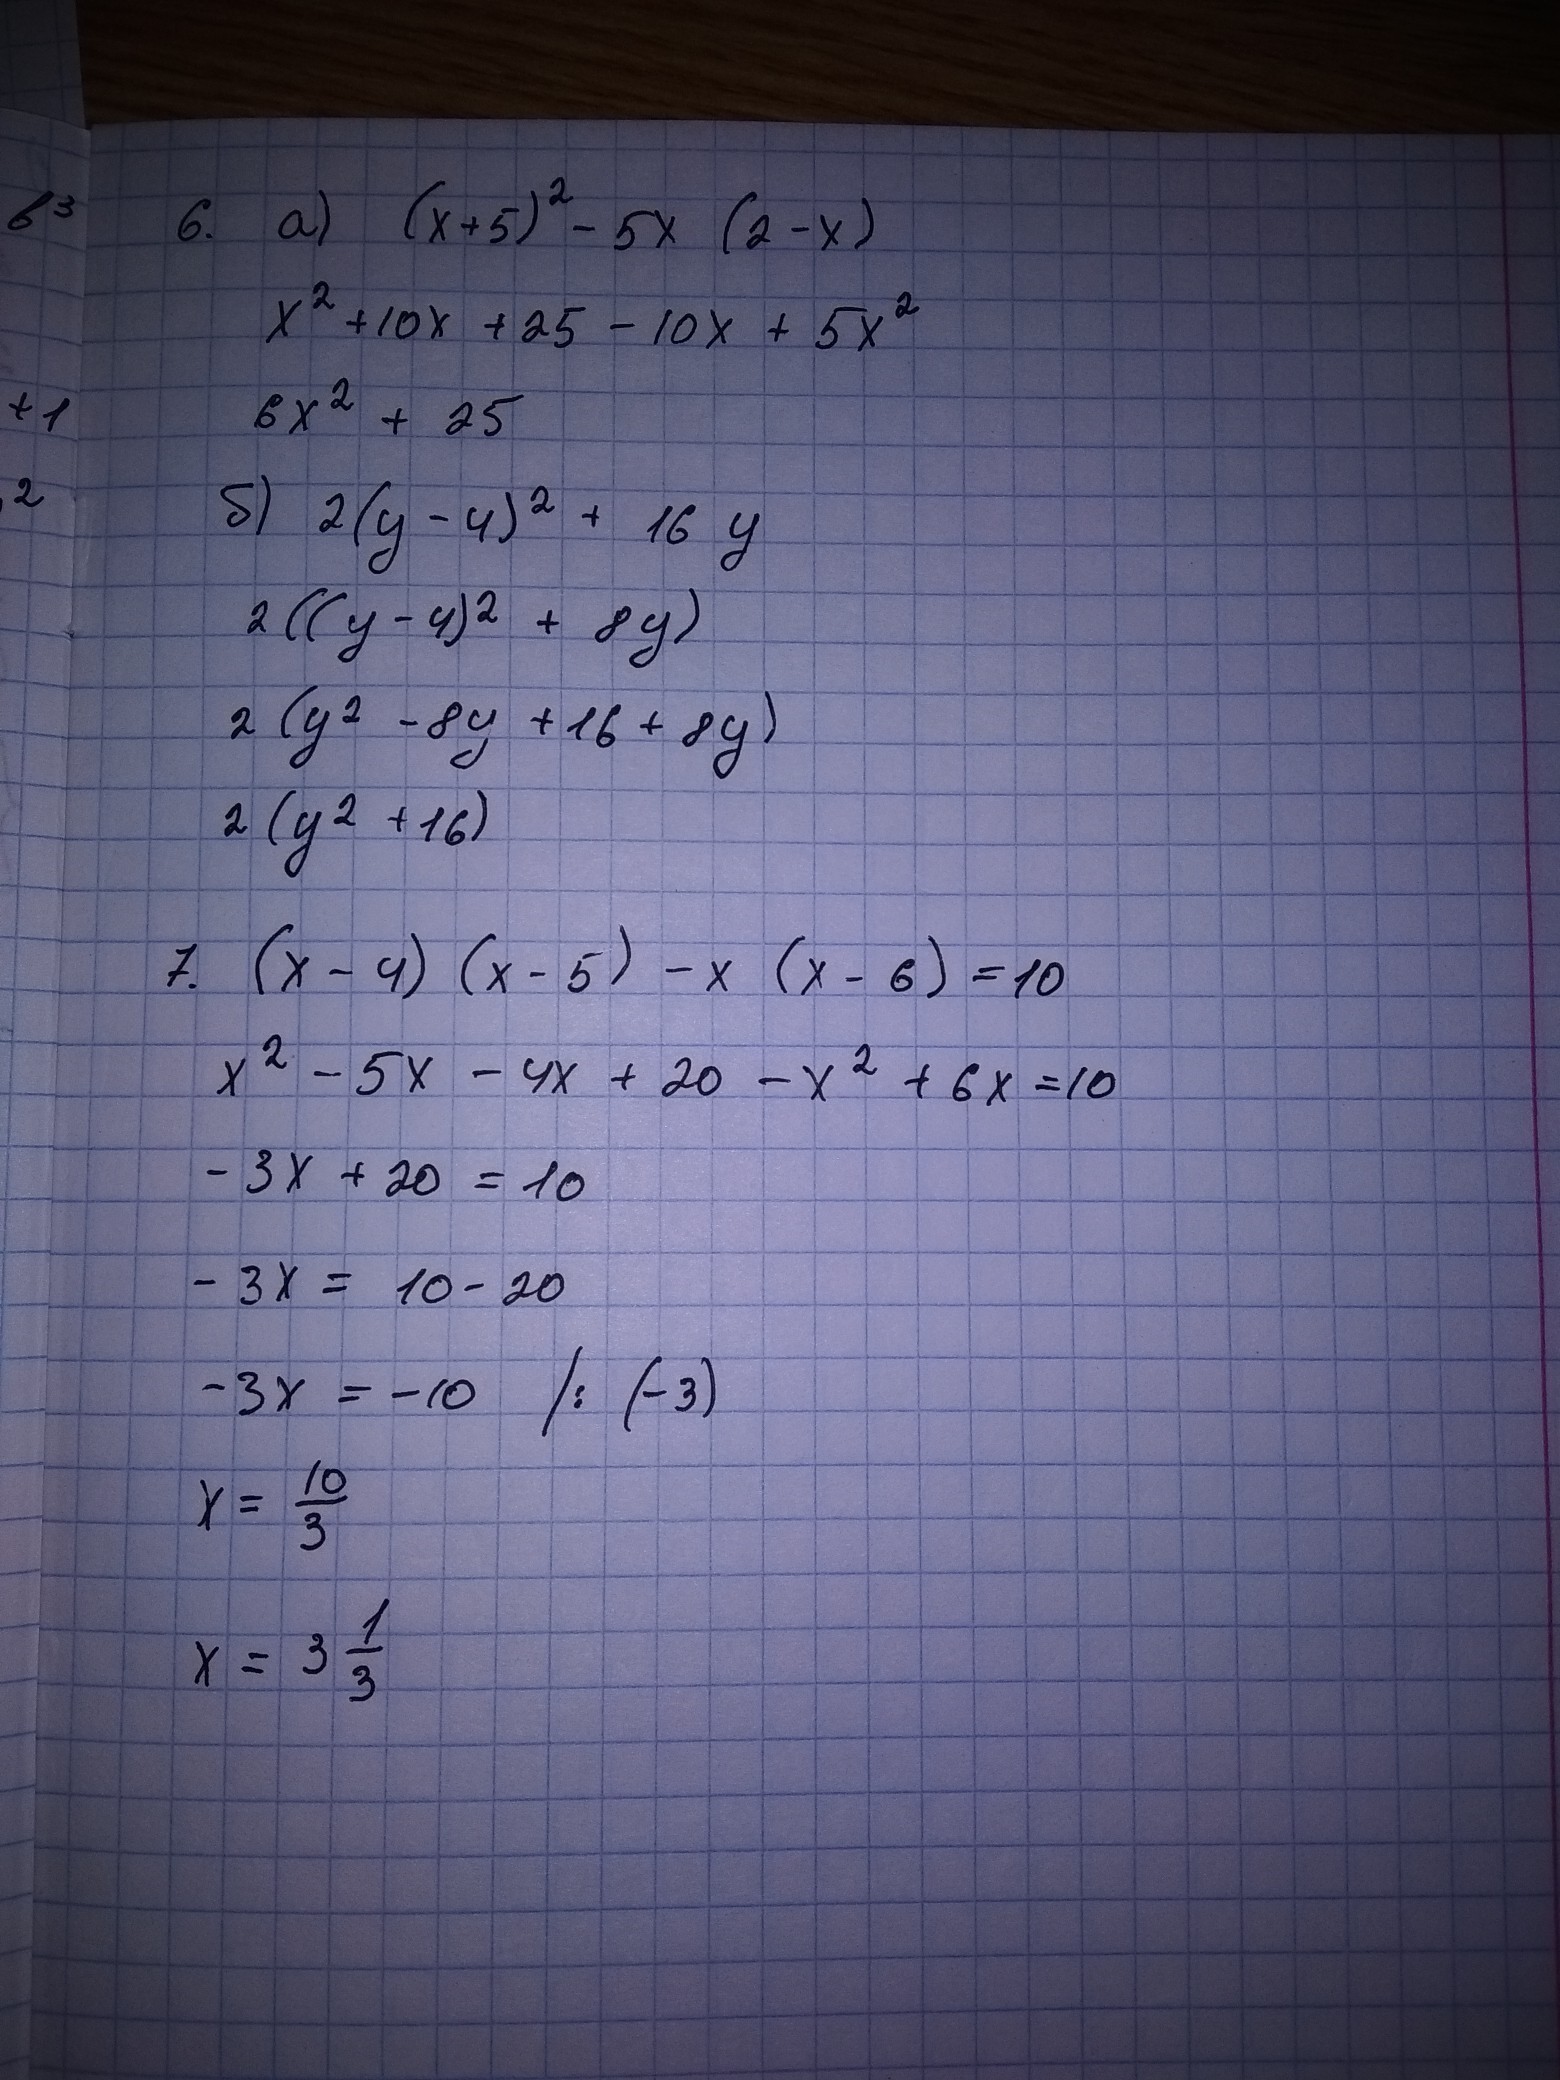 в³
+1
2
6. а) (x+5)² - 5x (2-x)
x² + 10x + 25 - 10x + 5x²
6x² + 25
б) 2(y-4)² + 16 y
2((y-4)² + 8y)
2(y² - 8y + 16 + 8y)
2(y² + 16)
7. (x-4) (x-5) - x (x-6) = 10
x² - 5x - 4x + 20 - x² + 6x = 10
-3x + 20 = 10
-3x = 10 - 20
-3x = -10 /: (-3)
x = 10/3
x = 3 1/3